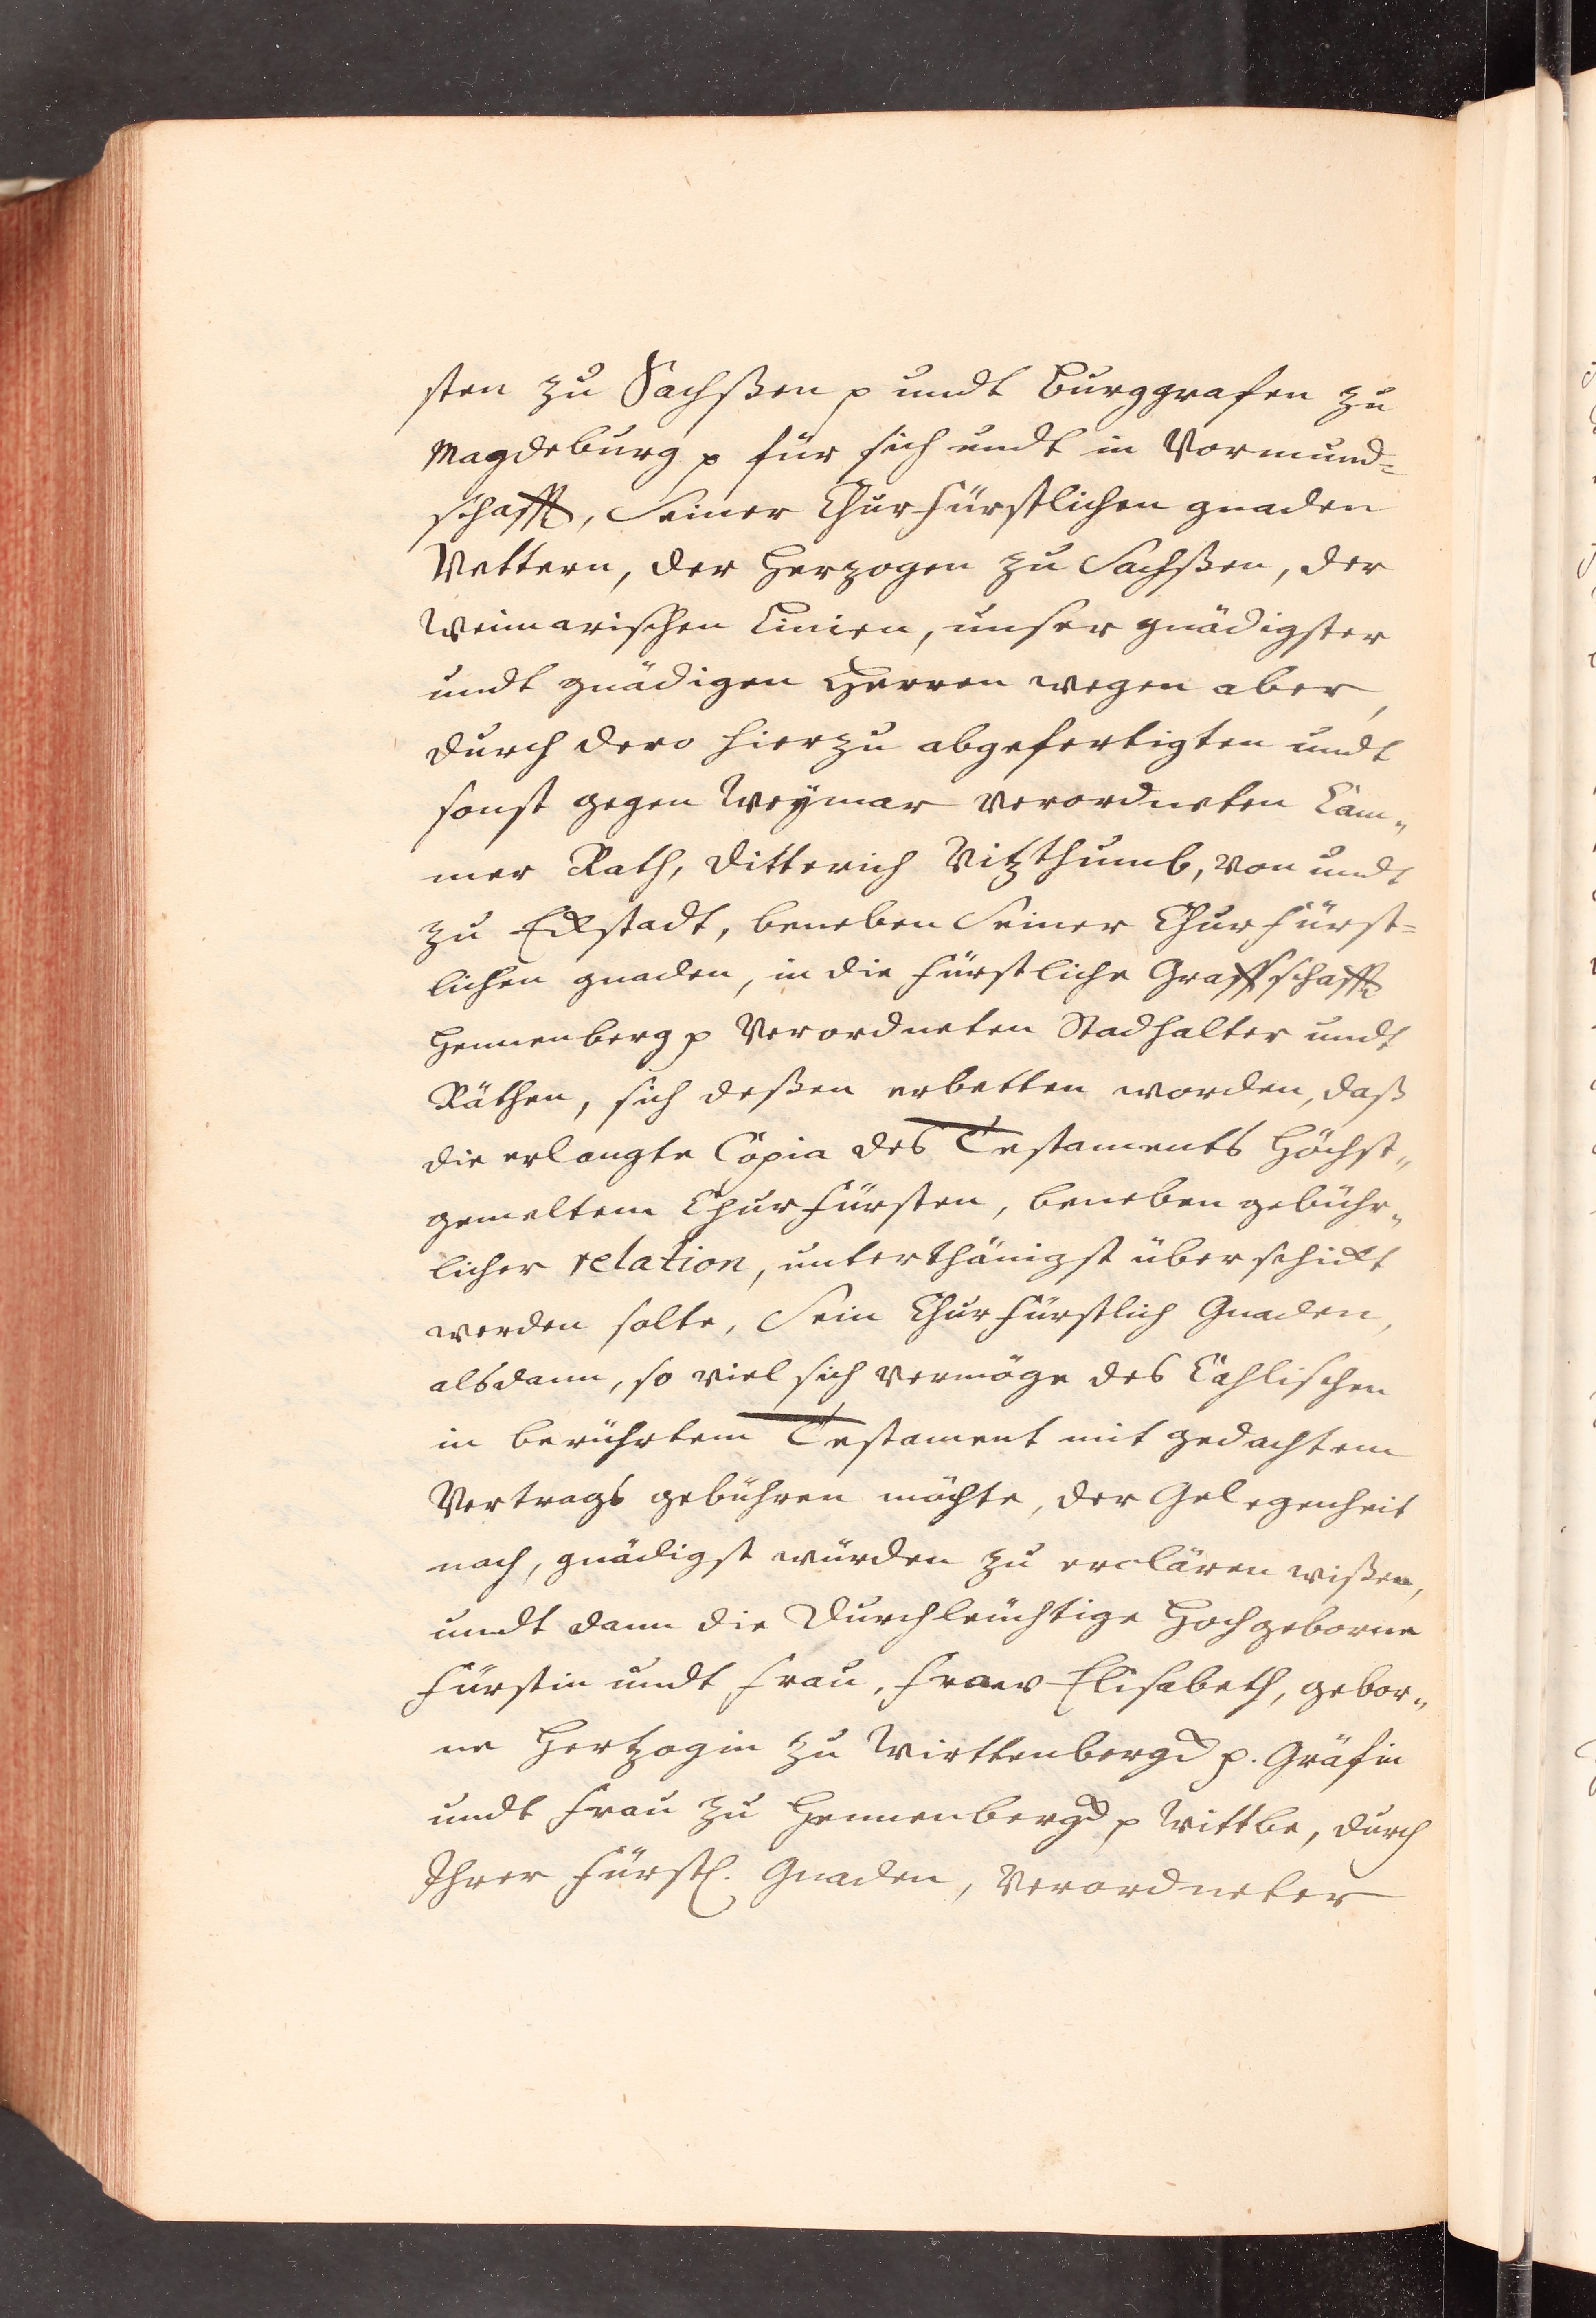 sten zu Sachßen p undt Burggrafen zu
Magdeburg p für sich undt in Vormund=
schafft, Seiner Churfürstlichen gnaden
Vettern, der Herzogen zu Sachßen, der
Weimarischen Linien, unser gnädigster
undt gnädigen Herren wegen aber,
durch dero hierzu abgefertigten undt
sonst gegen Weÿmar verordneten Cam„
mer Rath, Ditterich Vitzthumb, von undt
zu Eckstadt, beneben Seiner Churfürst=
lichen gnaden, in die Fürstliche Graffschafft
Hennenberg p Verordneten Stadhalter undt
Räthen, sich deßen erbetten worden, daß
die erlangte Copia des Testaments Höchst„
gemeltem Churfürsten, beneben gebühr„
licher relation, unterthänigst überschickt
werden solte, Sein Churfürstlich Gnaden,
alsdann, so viel sich vermöge des Cahlischen
in berührtem Testament mit gedachtem
Vertrags gebühren möchte, der Gelegenheit
nach, gnädigst würden zu erclären wißen,
undt dann die Durchleuchtige Hochgeborne
Fürstin undt Frau, Fraw Elisabeth, gebor„
ne Hertzogin zu Wirttenberg p. Gräfin
undt Frau zu Hennenberg p Wittbe, durch
Ihrer Fürstl. Gnaden, Verordneter